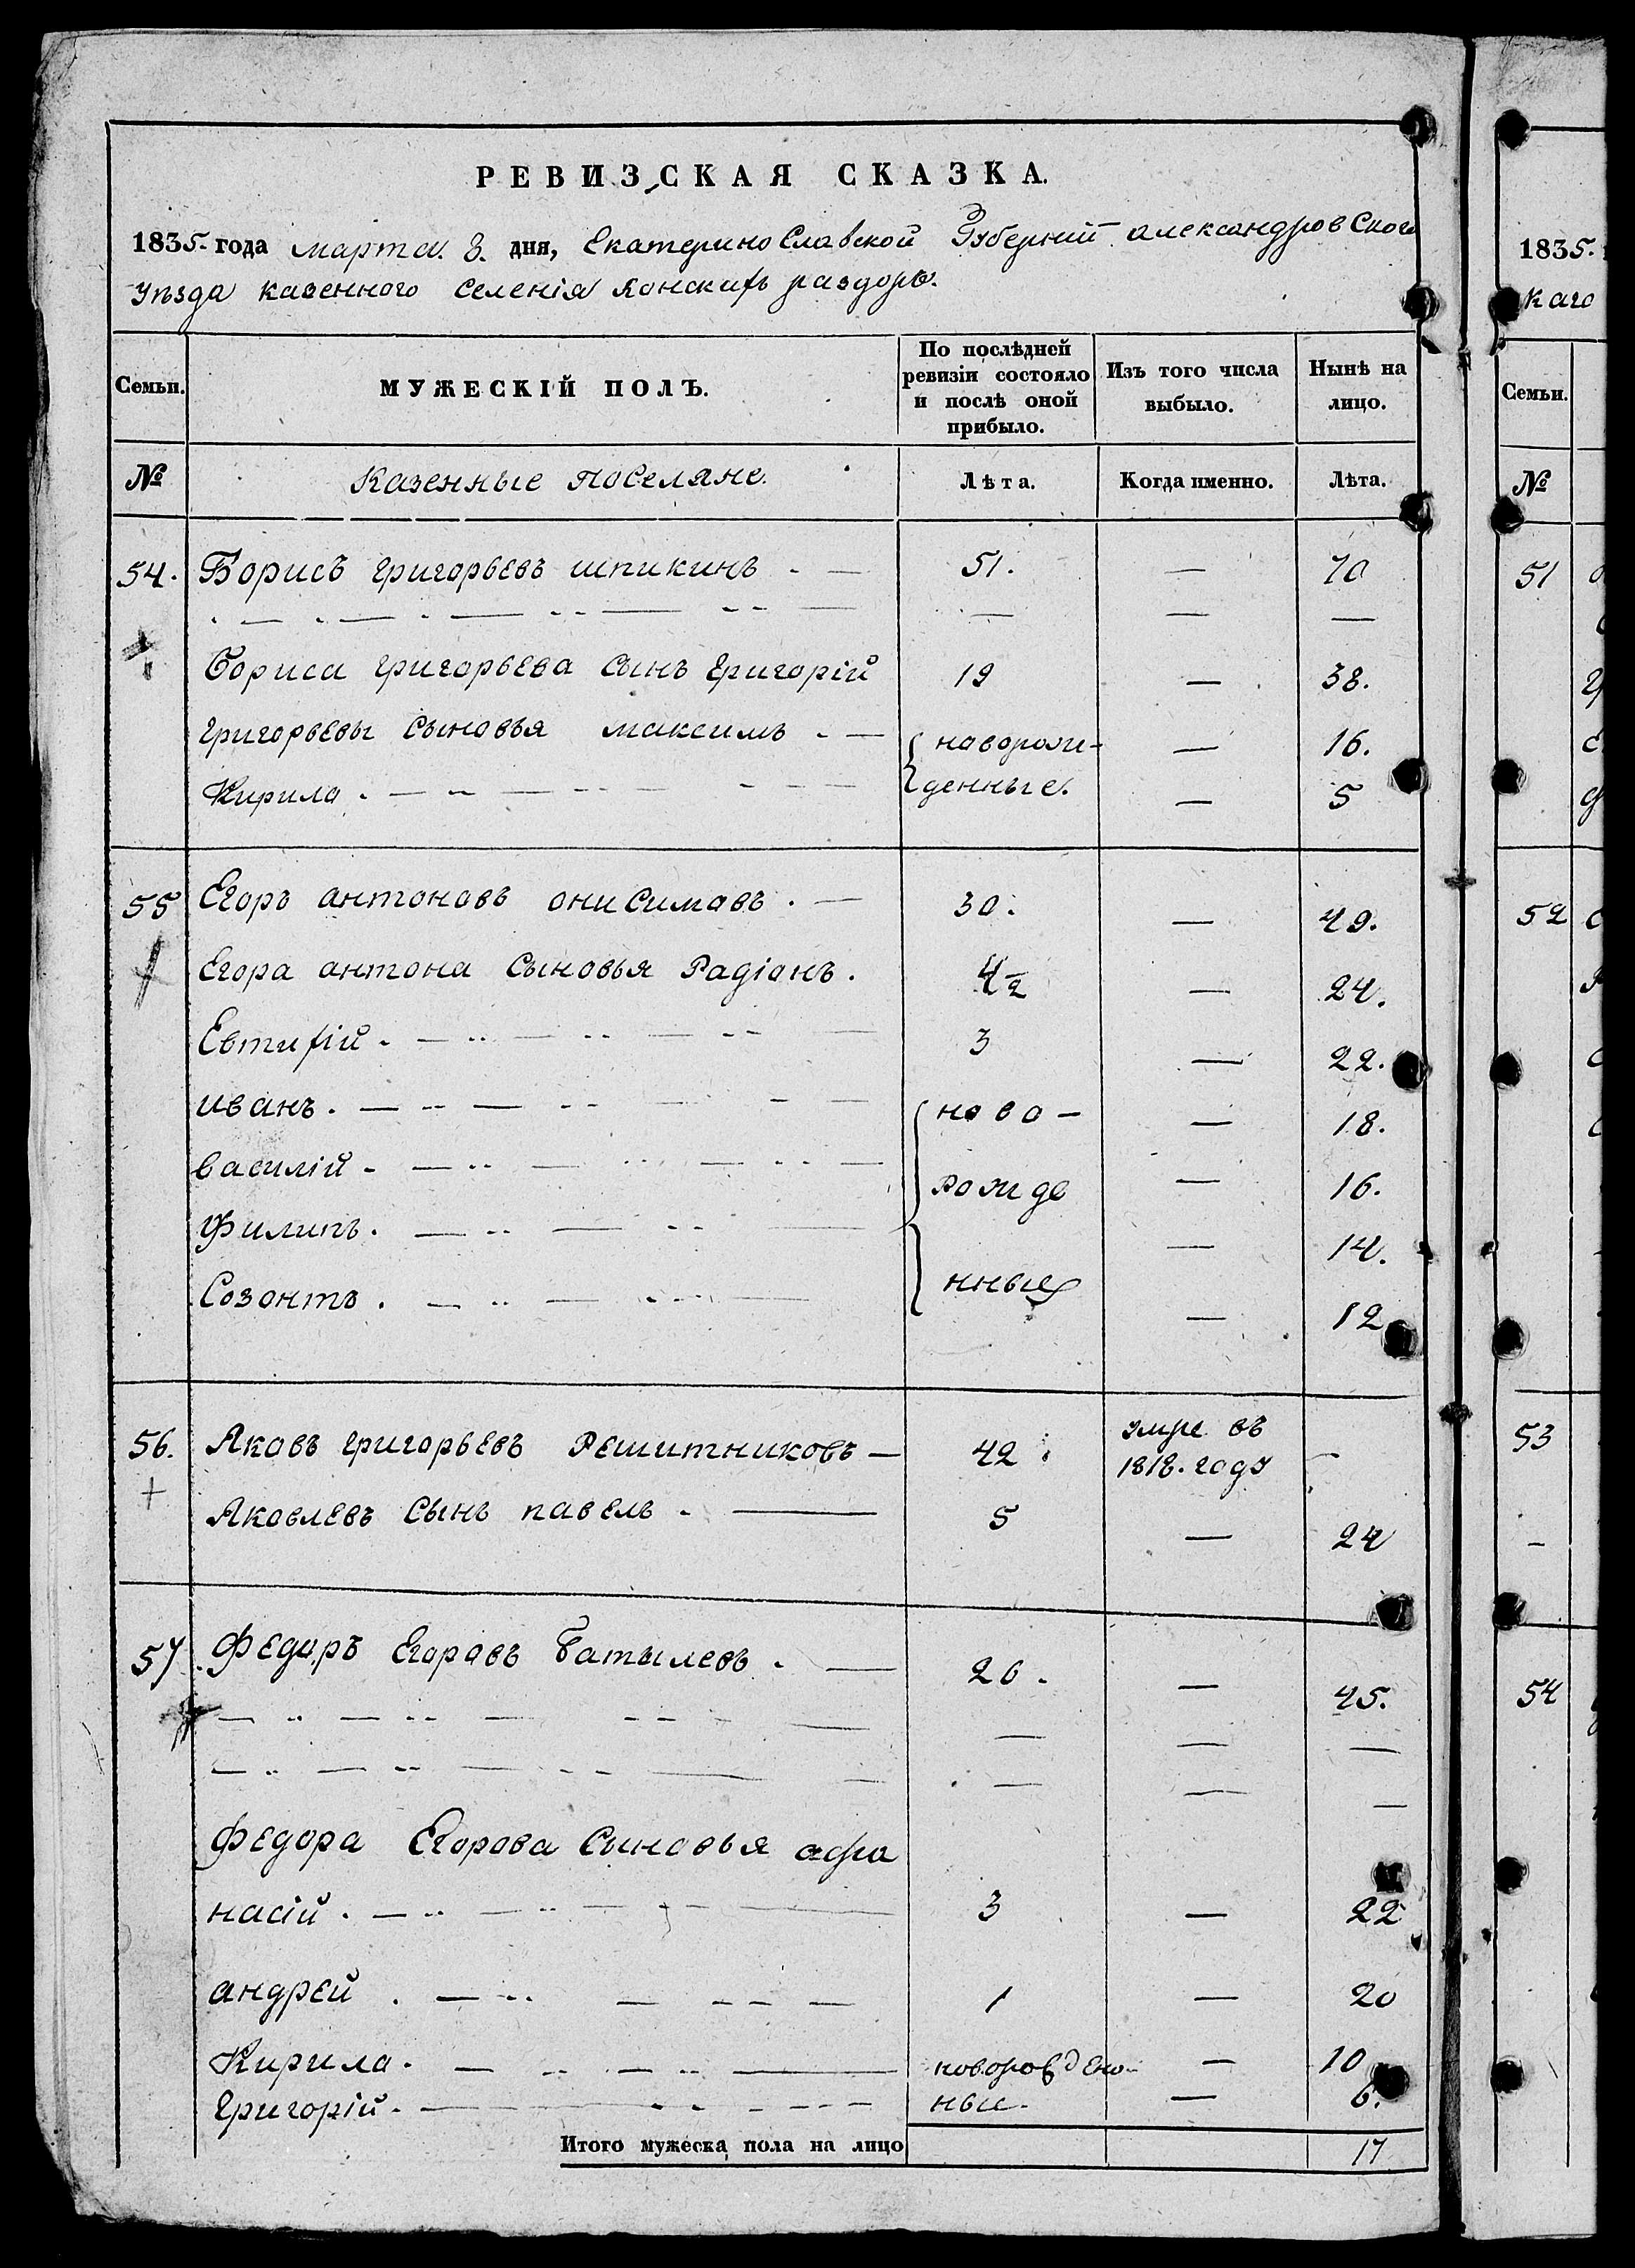 РЕВИЗСКАЯ СКАЗКА.
1835. года марта. 8. дня, Екатеринославской Губерний александровского
уѣзда казенного селенія Конскихъ раздоръ.
Семьи. МУЖЕСКІЙ ПОЛЪ. По послѣдней ревизіи состояло и послѣ оной прибыло. Изъ того числа выбыло. Нынѣ на лицо.
№ Казенные поселяне. Лѣта. Когда именно. Лѣта.
54. Борисъ григорьевъ шпикинъ 51. — 70
— — —
Бориса григорьева сынъ григорій 19 — 38.
григорьевы сыновья максимъ новорож- — 16.
Кирила денные. — 5
55 Егоръ антоновъ онисимовъ. 30. — 49.
Егора антона сыновья Радіонъ. 4½ — 24.
Евтифій 3 — 22.
иванъ. ново- — 18.
василій — 16.
рожде
Филипъ. — 14.
Созонтъ. нные — 12
56. Яковъ григорьевъ Решитниковъ 42 умре въ 1818. году —
Яковлевъ сынъ павелъ 5 — 24
57. Федоръ Егоровъ Батылевъ. 26. — 45.
— — —
— — —
Федора Егорова сыновья афа
насій. 3 — 22
андрей 1 — 20
Кирила. новорожден- — 10
григорій. ные. — 6.
Итого мужеска пола на лицо 17
1835.
каго
Семьи.
№
51
52
53
54